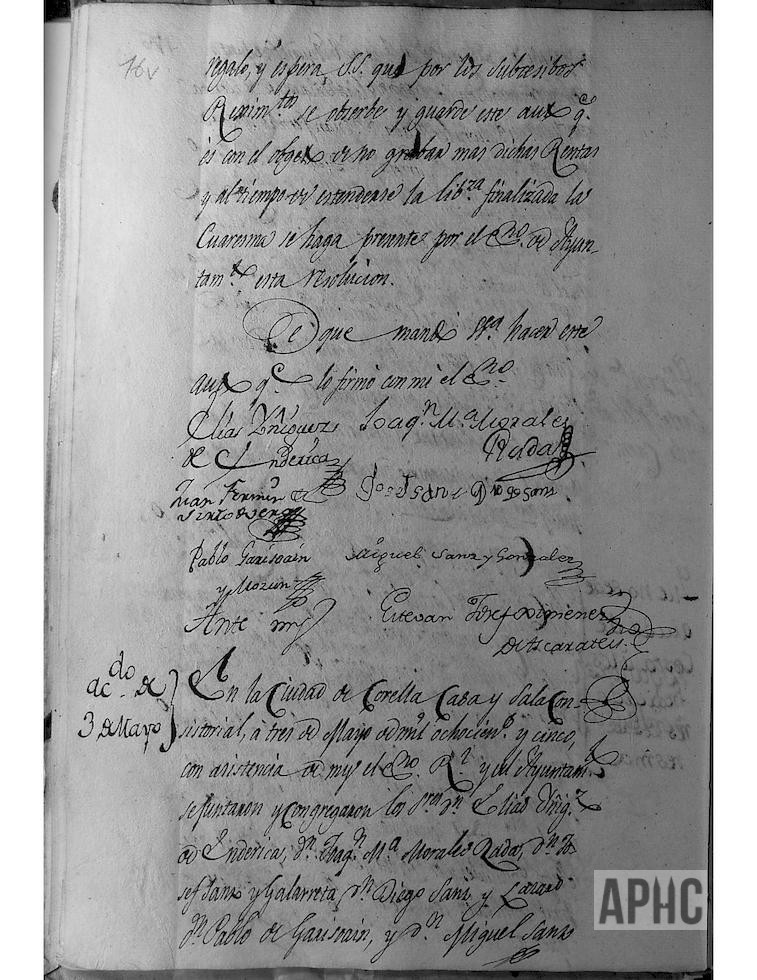 16v
regalo, y espera S.S. que por los subcesibos
Rexim.tos se observe y guarde este auto q.e
es con el objeto de no grabar mas dichas Rentas
y al tiempo de estenderse la lib.za finalizada la
Cuaresma se haga presente por el Es.no de Ayun-
tam.to esta resolucion.
De que mandó S.Sª hacer este
auto q.e lo firmó con mi el Es.no
Elias Yñiguez Joaq.n M.a Morales
de Enderica Rada
Juan Fermin
Pablo Garisoain Miguel Sanz y Gonzalez
y Morion
Ante mi Estevan Josef Ximenez
de Ascarate es.no
ac.do de
3 de Mayo
En la Ciudad de Corella Casa y Sala Con-
sistorial, à tres de Mayo de mil ochocien.s y cinco,
con asistencia de my el Es.no R.l y del Ayuntam.to
se juntaron y congregaron los S.res D.n Elias Yñig.z
de Enderica, D.n Joaq.n M.a Morales Rada, D.n Jo-
sef Sanz y Galarreta, D.n Diego Sanz y Lazaro
D.n Pablo de Garisoain, y D.n Miguel Sanz
APHC